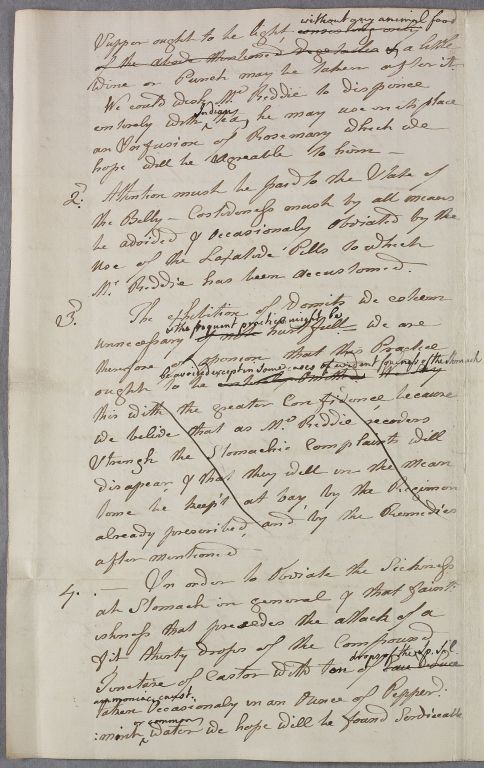 without any animal food
Supper ought to be light, consisting only
of the above mentioned Vegetables & a little
Wine or Punch may be taken after it.
We could wish Mr. Riddie to dispence
Indian
entirely with Tea, he may use in its place
an Infusion of Rosemary which we
hope will be agreeable to him —
2d. Attention must be paid to the State of
the Belly — Costiveness must by all means
be avoided & occasionaly obviated by the
use of the Laxative Pills to which
Mr. Riddie has been accustomed.
3d. The exhibition of Vomits we esteem
& the frequent practice might be
unnecessary if not hurtfull — we are
therefore of opinion that this Practice
be avoided except in some cases of urgent foulness of the stomach
ought to be
this with the greater Confidence because
we belive that as Mr. Riddie recovers
strength the Stomachic Complaints will
disapear & that they will in the mean
time be keep't at bay by the Regimen
already prescribed, and by the Remedies
after mentioned —
4. — In order to obviate the Sickness
at Stomach in general & that faint-
ishness that precedes the attack of a
fit thirty drops of the Compound
drops of the sp. sal.
Tincture of Castor with ten of
ammoniac. caust.
taken occasionaly in an Ounce of Pepper-
or common
:mint water we hope will be found Serviceable